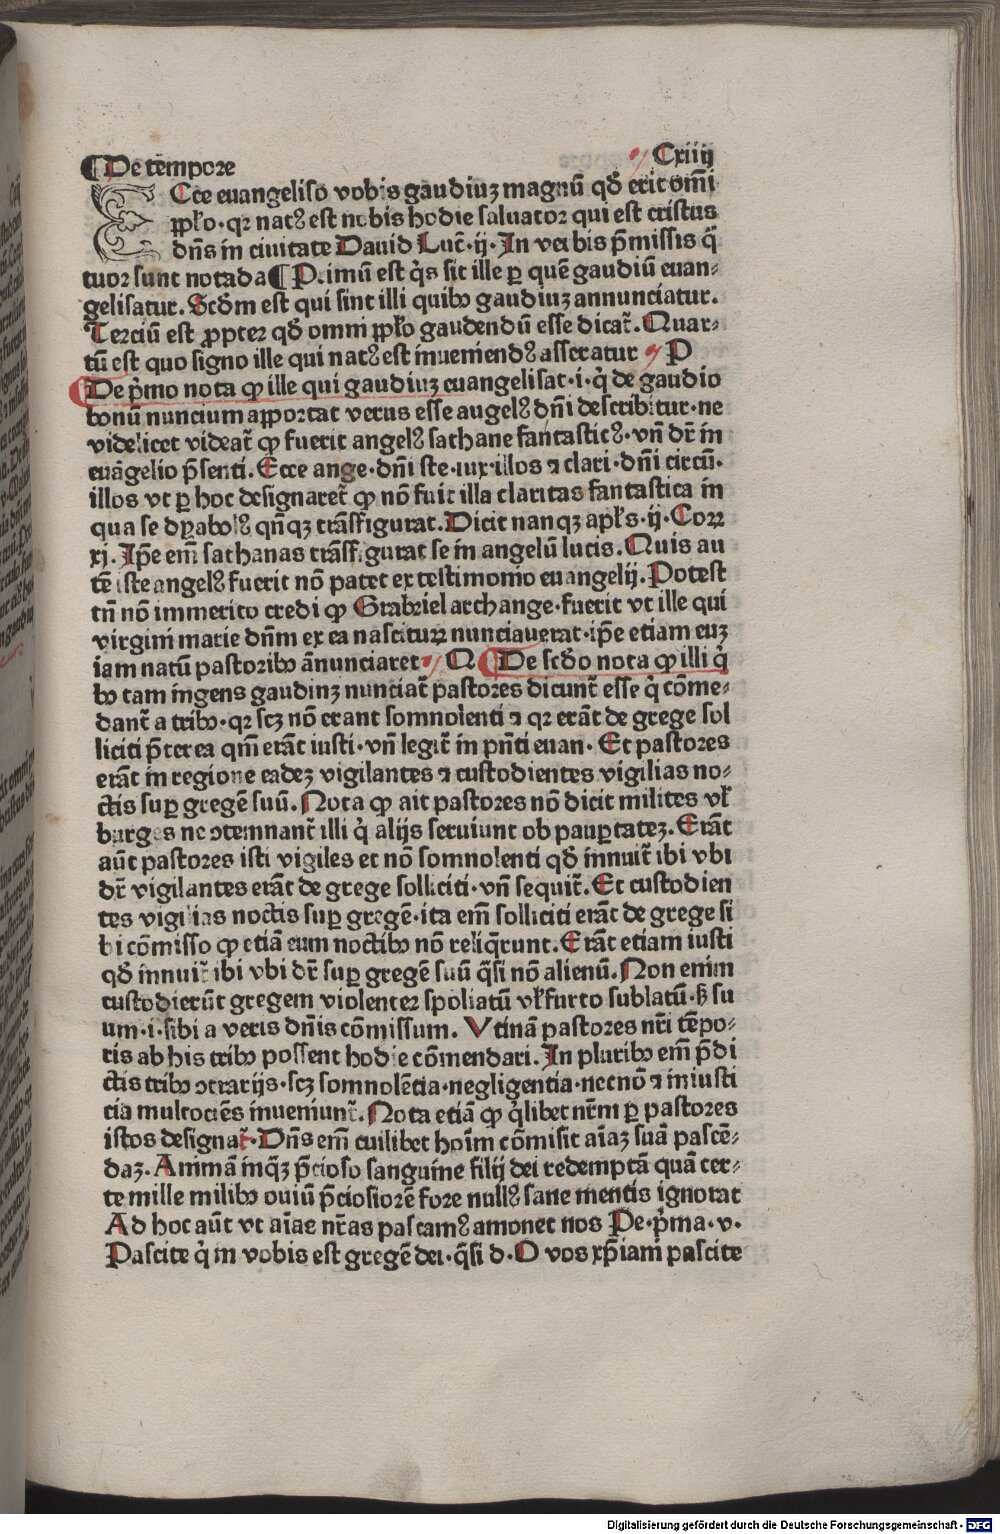 ¶De tēmpore Cxiiij
ECce euangeliso vobis gaudiuz magnū qđ erit om̄i
ppl̓o·qꝛ natꝰ est nobis hodie saluator qui est cristus
dn̄s in ciuitate Dauid Luc̄·ij·In verbis p̄missis q̄
tuor sunt notada¶Primū est q̓s sit ille ꝑ quē gaudiū euan⸗
gelisatur. Scđm est qui sint illi quibꝫ gaudiuz annunciatur.
Terciū est ꝓpter qđ omni ppl̓o gaudendū esse dicat̄. Quar⸗
tū est quo signo ille qui natꝰ est inueniendꝰ asseratur P
De p̓mo nota ꝙ ille qui gaudiuz euangelisat·i·q̓ de gaudio
bonū nuncium apportat verus esse augelꝰ dn̄i describitur·ne
videlicet videat̄ ꝙ fuerit angelꝰ sathane fantasticꝰ·vn̄ dr̄ in
euāgelio p̄senti. Ecce ange·dn̄i ste·iux·illos ⁊ clari·dn̄i circū·
illos vt ꝑ hoc designaret̄ ꝙ nō fuit illa claritas fantastica in
qua se dyabolꝰ qn̄qꝫ trāsfigurat. Dicit nanqꝫ apl̓s·ij·Corꝝ
xj. Ip̄e em̄ sathanas trāsfigurat se in angelū lucis. Quis au
tē iste angelꝰ fuerit nō patet ex testimonio euangelij. Potest
tn̄ nō immerito credi ꝙ Grabriel archange·fuerit vt ille qui
virgini marie dn̄m ex ea nasciturꝝ nunciauerat·ip̄e etiam euꝫ
iam natū pastoribꝫ ānunciaret Q ¶De scđo nota ꝙ illi q̓
bꝫ tam ingens gaudinz nunciat̄ pastores dicunt̄ esse q̓ cōme⸗
dant̄ a tribꝫ·qꝛ scꝫ nō erant somnolenti ⁊ qꝛ erāt de grege sol
liciti p̄terea qm̄ erāt iusti·vn̄ legit̄ in pn̄ti euan·Et pastores
erāt in regione eadeꝫ vigilantes ⁊ custodientes vigilias no⸗
ctis suꝑ gregē suū. Nota ꝙ ait pastores nō dicit milites vl̓
burges ne ↄtemnant̄ illi q̓ alijs seruiunt ob pauꝑtateꝫ. Erāt
aūt pastores isti vigiles et nō somnolenti qđ innuit̄ ibi vbi
dr̄ vigilantes erāt de grege solliciti·vn̄ sequit̄. Et custodien
tes vigilias noctis suꝑ gregē·ita em̄ solliciti erāt de grege si
bi cōmisso ꝙ etiā eum noctibꝫ nō reliq̄runt. Erāt etiam iusti
qđ innuit̄ ibi vbi dr̄ suꝑ gregē suū q̄si nō alienū. Non enim
custodierūt gregem violenter spoliatū vl̓ furto sublatū·ꝭ su
um·i·sibi a veris dn̄is cōmissum. Vtinā pastores nr̄i tēpo⸗
ris ab his tribꝫ possent hodie cōmendari. In pluribꝫ em̄ p̄di
ctis tribꝫ ↄtrarijs·scꝫ somnolētia·negligentia·necnō ⁊ iniusti
cia multociēs inueniunt̄. Nota etiā ꝙ q̓libet nr̄m ꝑ pastores
istos designat̄. Dn̄s em̄ cuilibet hoīm cōmisit aīaꝫ suā pascē⸗
daꝫ. Animā inqꝫ p̄cioso sanguine filij dei redemptā quā cer⸗
te mille milibꝫ ouiū p̄ciosiorē fore nullꝰ sane mentis ignorat
Ad hoc aūt vt aīas nr̄as pascamꝰ amonet nos Pe·p̓ma·v·
Pascite q̓ in vobis est gregē dei·q̄si d·O vos xp̄iani pascite
Digitalisierung gefördert durch die Deutsche Forschungsgemeinschaft - DFG